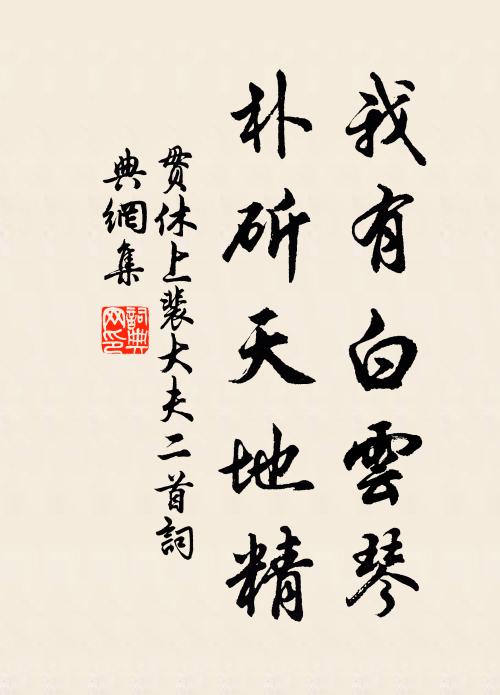 我有白雲琴
朴斫天地精
貫休上裴大夫二首詞
典網集
詞典
网印